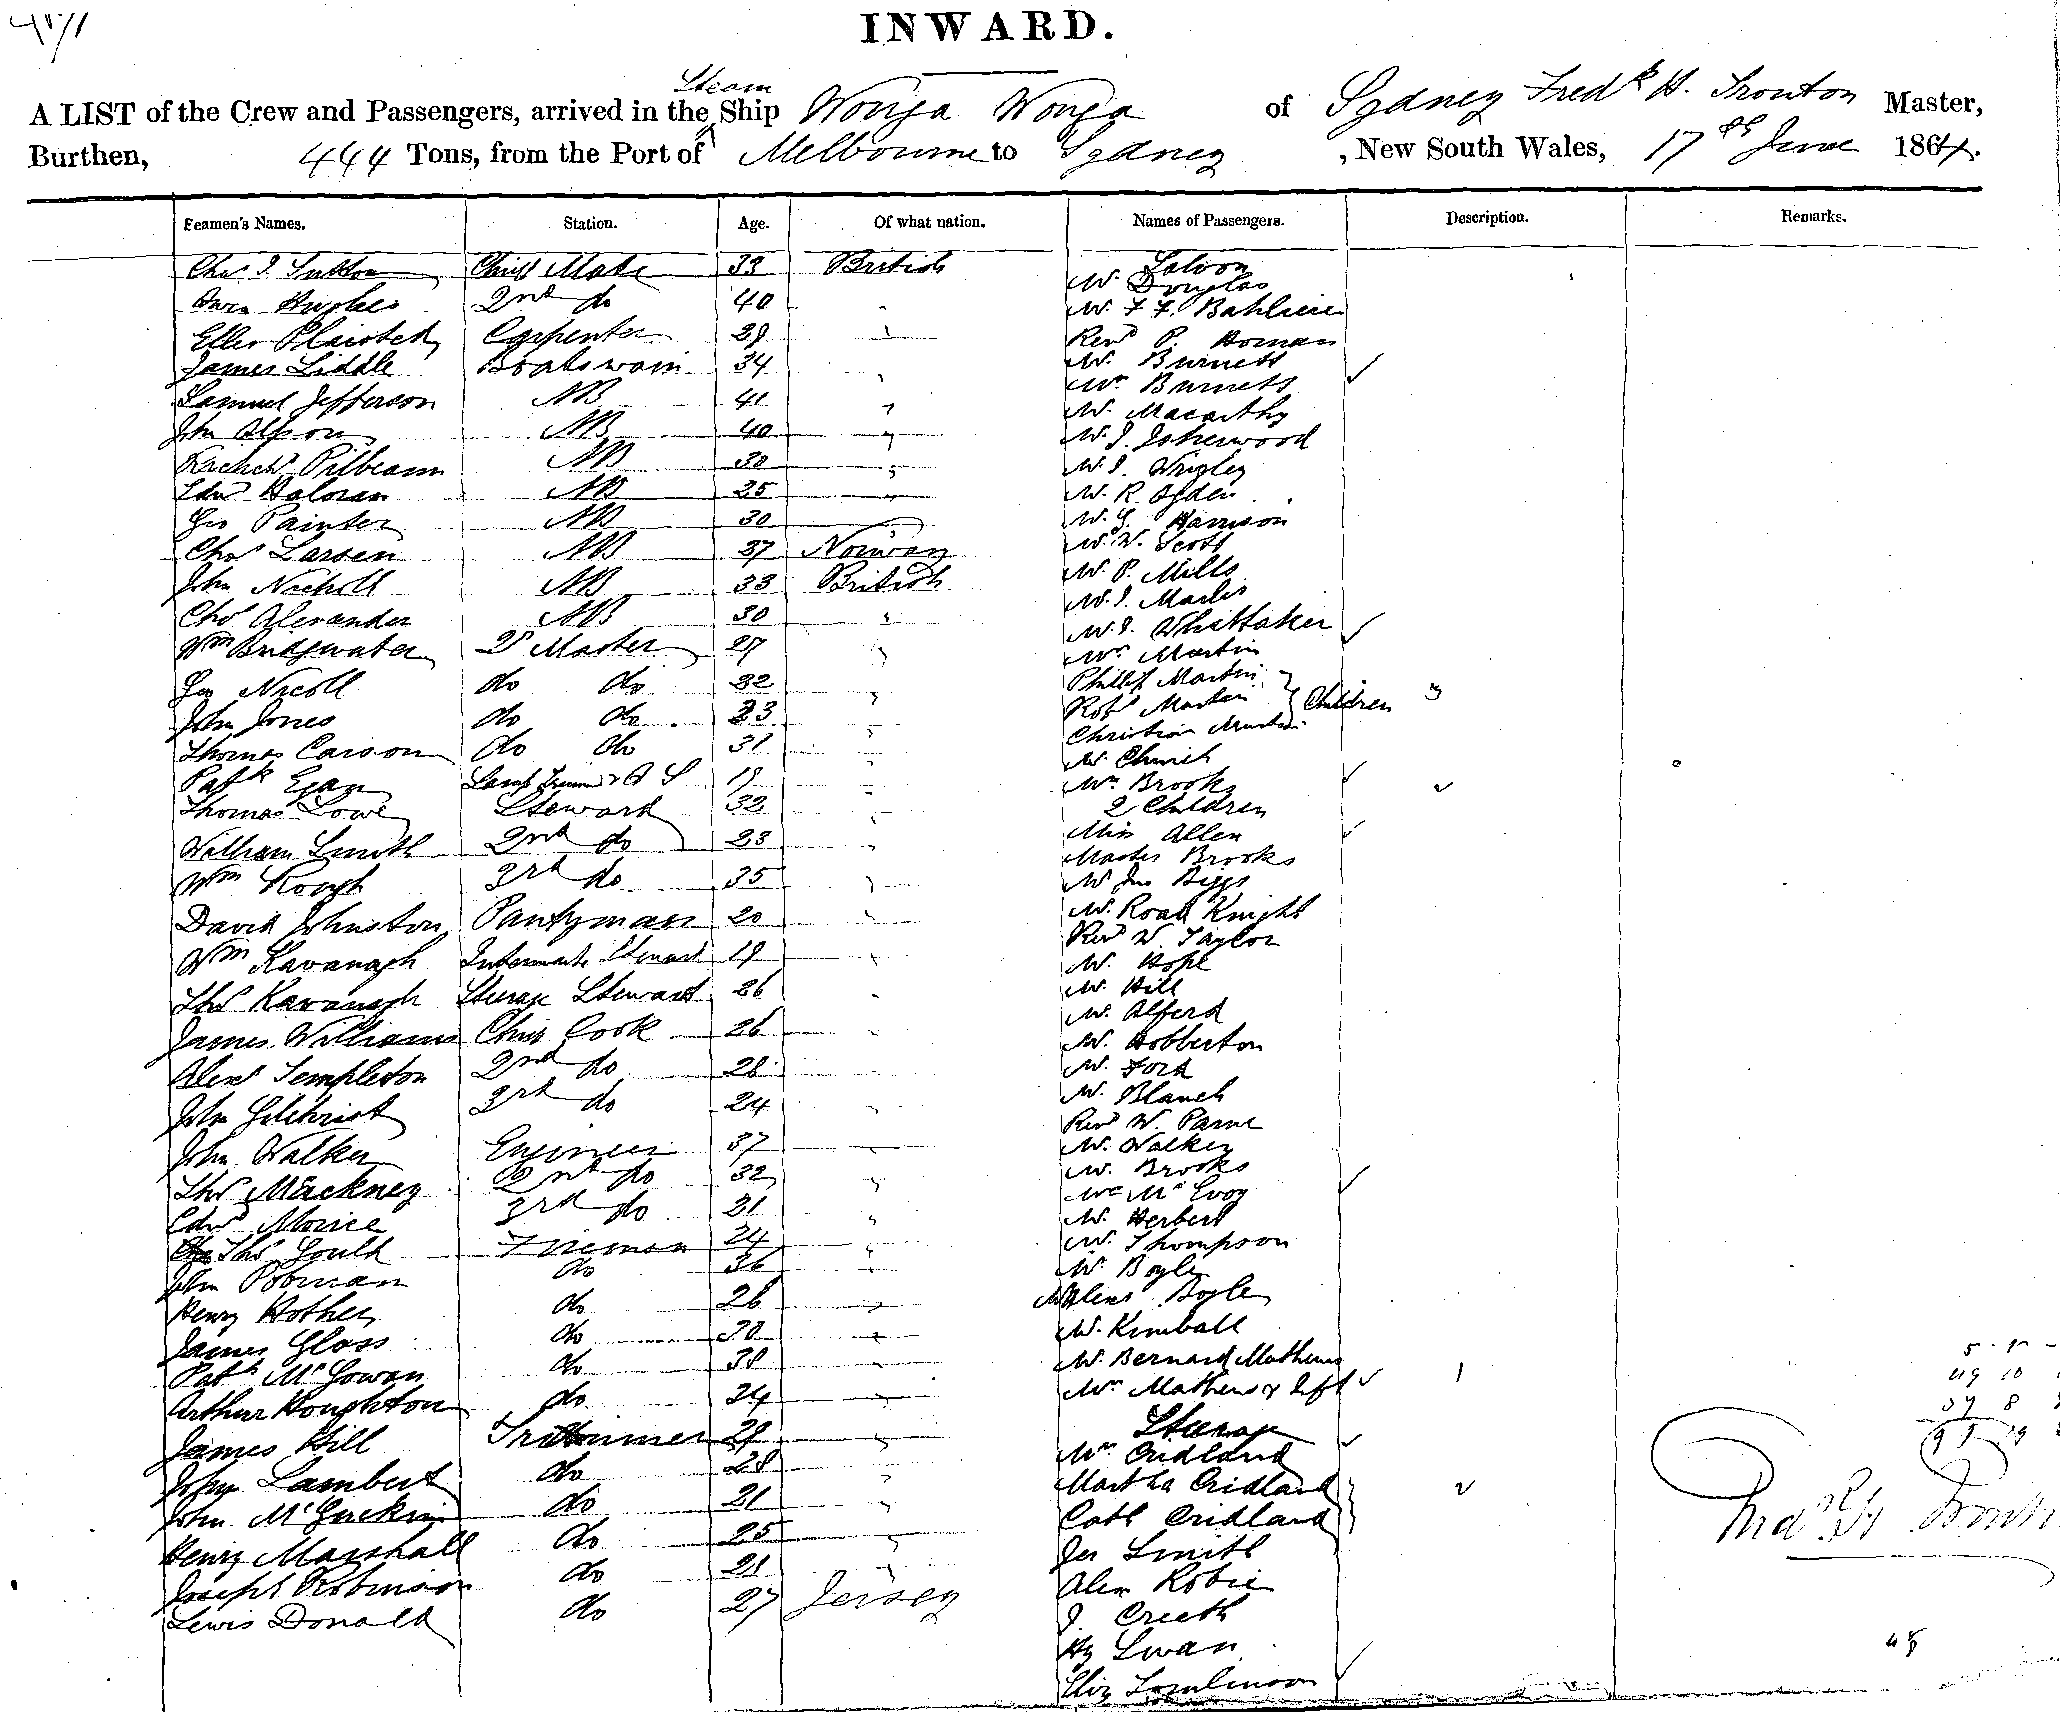 INWARD.
Steam
A LIST of the Crew and Passengers, arrived in the Ship Wonga Wonga of Sydney Fredk H. Trouton Master,
Burthen, 444 Tons, from the Port of Melbourne to Sydney, New South Wales, 17th June 1864.
Seamen's Names. Station. Age. Of what nation. Names of Passengers. Description. Remarks.
Saloon
Chas J. Sutton Chief Mate 33 British Mr. Douglas
Owen Hughes 2nd do 40 " Mr. F. F. Bahliere
Ellis Plaisted Carpenter 29 " Revd P. Homan
James Liddle Boatswain 34 " Mr. Burnett
Mrs Burnett
Samuel Jefferson AB 41 " Mr. Macarthy
John AB 40 " Mr. J. Isherwood
Pilbeam AB 30 " Mr. J. Wrigley
Edwd Haloran AB 25 " Mr. R. Ogden
Geo Painter AB 30 Mr. G. Harrison
Chas Larsen AB 37 Norway Mr. W. Scott
John Nicholl AB 33 British Mr. P. Mills
Chas Alexander AB 30 " Mr. J.
Mr. J. Whittaker
Wm Bridgwater Qr Master 27 " Mrs Martin
Geo Nicoll do do 32 " Phillip Martin
John Jones do do 23 " Robt Martin Children 3
Christian Martin
Thomas Carson do do 31 " Mr. Church
Patk Egan Lamp Trimr & O S 19 " Mrs Brooks
Thomas Lowe Steward 32 " 2 Children
William Smith 2nd do 23 " Miss Allen
Master Brooks
Wm Rough 3rd do 35 " Mr Jno Biggs
David Johnston Pantryman 20 " Mr. Road Knight
Revd W. Taylor
Wm Kavanagh Intermediate Steward 19 " Mr. Hope
Thos Kavanagh Steerage Steward 26 " Mr. Hill
Mr. Alford
James Williams Chief Cook 26 " Mr. Hobberton
Alexr Templeton 2nd do 28 " Mr. Ford
John Gilchrist 3rd do 24 " Mr. Blanch
Revd W. Parne
John Walker Engineer 37 " Mr. Walker
Thos Mackney 2nd do 32 " Mr. Brooks
Mrs McEvoy
Edwd Morice 3rd do 21 " Mr. Herbert
Thos Gould Fireman 24 " Mr. Thompson
John Pobman do 36 " Mr. Boyle
Henry Hother do 26 " Alexr Boyle
James Gloss do 30 " Mr. Kimball
Patk McGowan do 30 " Mr. Bernard Mathews
Arthur Houghton do 24 " Mrs Mathews & Inft 1
Steerage
James Hill Trimmer 29 " Mrs Cridland
John Lambert do 28 " Martha Cridland 2
John McGuckin do 21 " Cath Cridland
Henry Marshall do 25 " Jas Smith
Joseph Robinson do 21 " Alex Robie
Lewis Donald do 27 Jersey J. Creeth
Hy Swan
Eliz Tomlinson